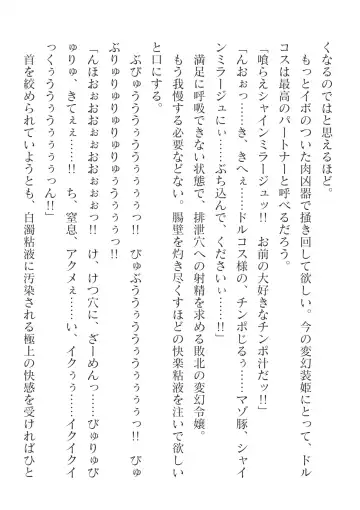 くなるのではと思えるほど。
もっとイボのついた肉凶器で掻き回して欲しい。今の変幻装姫にとって、ドル
コスは最高のパートナーと呼べるだろう。
「喰らえシャインミラージュッ!! お前の大好きなチンポ汁だッ!!」
「んおぉっ……き、きへぇ……ドルコス様の、チンポじるぅ……マゾ豚、シャイ
ンミラージュにぃ……ぶち込んで、くださいぃ……!!」
満足に呼吸できない状態で、排泄穴への射精を求める敗北の変幻令嬢。
もう我慢する必要などない。腸壁を灼き尽くすほどの快楽粘液を注いで欲しい
と口にする。
ぶびゅううぅぅぅぅぅぅっ!! びゅぶううぅぅぅぅぅぅぅぅっ!! びゅ
ぶりゅりゅりゅりゅぅぅぅぅっ!!
「んほおぉおおぉおぉおぉぉぉっ!! け、けつ穴に、ざーめんっ……びゅりゅび
ゅりゅ、きてぇぇ……!! ち、窒息、アクメぇ……い、イクぅぅ……イクイクイ
っくぅううぅぅうぅぅぅん!!」
首を絞められていようとも、白濁粘液に汚染される極上の快感を受ければひと